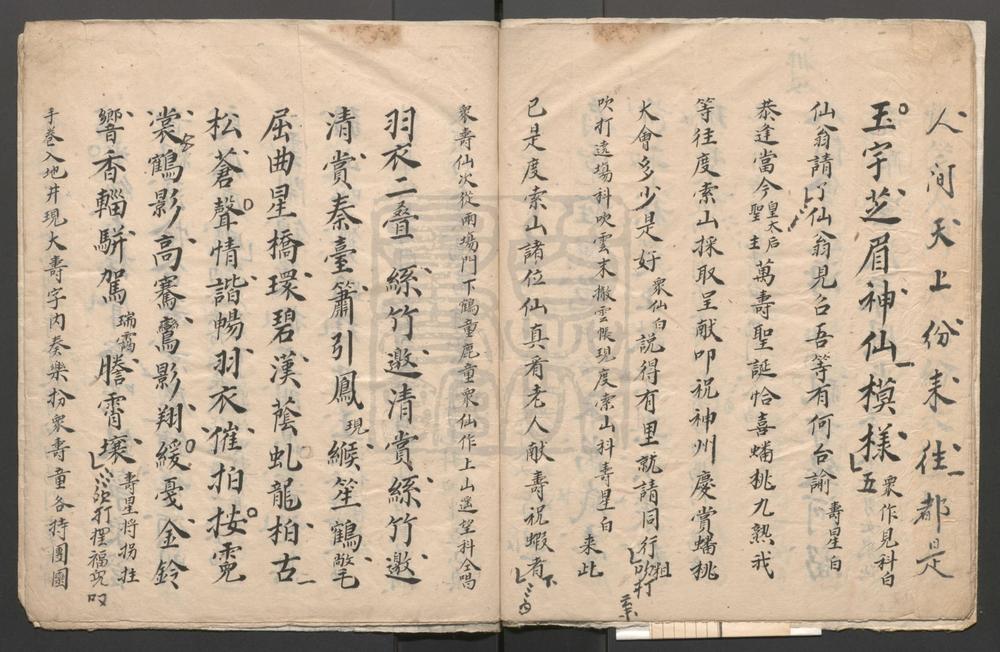 人间天上份来往都是
玉宇芝眉神仙模樣五衆作見科白
仙翁請了仙翁見召吾等有何台諭壽星白
恭逢當今皇太后聖主萬壽聖誕恰喜蟠桃九熟我
等往度索山採取呈献叩祝神州慶賞蟠桃
大會多少是好衆仙白說得有里就請同行吹打
吹打遶場科吹雲末撤雲帳現度索山科壽星白來此
已是度索山諸位仙真看老人献壽祝蝦者
衆壽仙次從兩塲門下鶴童鹿童衆仙作上山遥望科仝唱
羽衣二叠絲竹邀清賞絲竹邀
清賞秦臺簫引鳳現緱笙鶴氅
屈曲星橋環碧漢蔭虬龍柏古
松蒼聲情諧暢羽衣催拍按霓
裳鶴影高騫鸞影翔緩戞金鈴
響香輜駢駕瑞靄謄霄壤吹打壽星将拐拄擺福完叹
手卷入地井現大壽字内奏樂扮衆壽童各持團圓